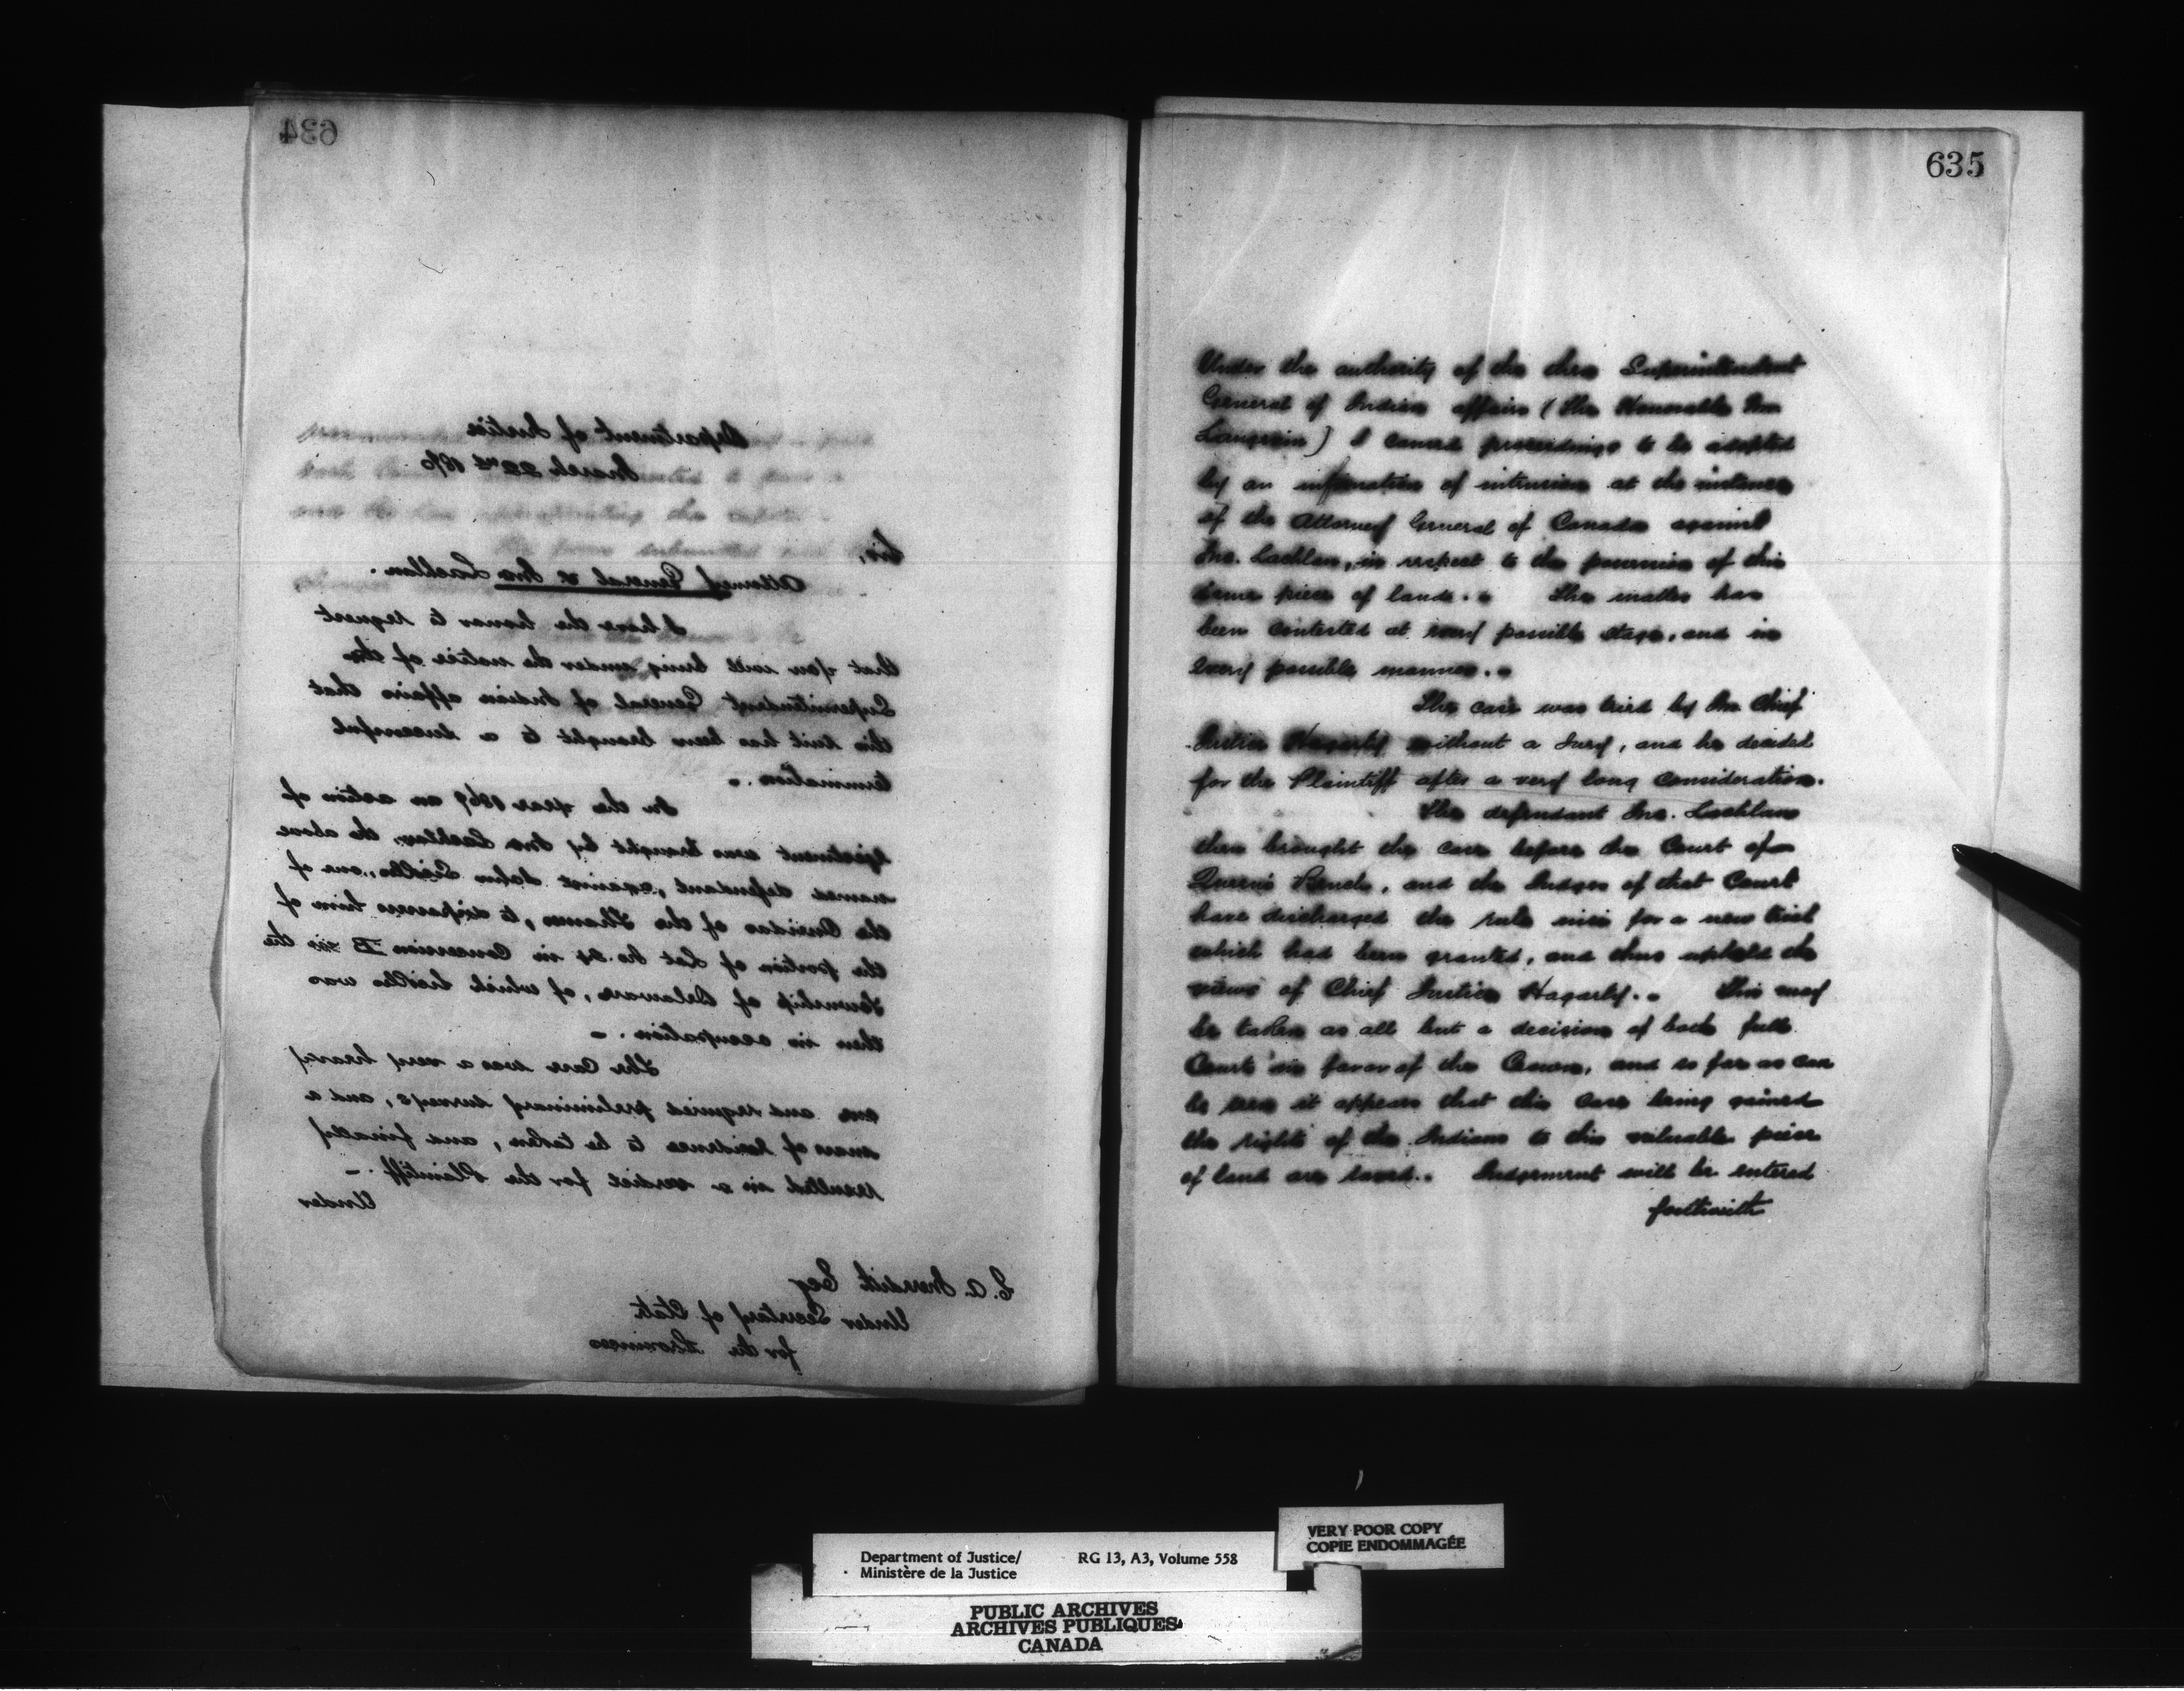 634
Department of Justice
March 22nd 1870
Sir,
Attorney General vs McLachlan.
I have the honor to request
that you will bring under the notice of the
Superintendent General of Indian affairs that
this suit has been brought to a successful
termination.
In the year 1869 an action of
Ejectment was brought by McLachlan, the above
named defendant, against John Sickles, one of
the Oneidas of the Thames, to dispossess him of
the portion of Lot No. in Concession B in the
Township of Delaware, of which Sickles was
then in occupation.
The Case was a very heavy
one and required preliminary surveys, and a
mass of Evidence to be taken, and finally
resulted in a verdict for the Plaintiff.
Under
E. A. Meredith Esq
Under Secretary of State
for the Provinces
635
Under the authority of the then Superintendent
General of Indian affairs (The Honorable Mr
Langevin) I caused proceedings to be adopted
by an information of intrusion at the instance
of the Attorney General of Canada against
McLachlan, in respect to the possession of this
same piece of land. The matter has
been contested at every possible stage, and in
every possible manner.
The case was tried by Mr Chief
Justice Hagarty without a Jury, and he decided
for the Plaintiff after a very long consideration.
The defendant McLachlan
then brought the case before the Court of
Queen's Bench, and the Judges of that Court
have discharged the rule nisi for a new trial
which had been granted, and thus uphold the
views of Chief Justice Hagarty. This may
be taken as all but a decision of both full
Courts in favor of the Crown, and so far as can
be seen it appears that this Case being gained
the rights of the Indians to this valuable piece
of land are saved. Judgement will be entered
forthwith
Department of Justice/
Ministère de la Justice
RG 13, A3, Volume 558
VERY POOR COPY
COPIE ENDOMMAGÉE
PUBLIC ARCHIVES
ARCHIVES PUBLIQUES
CANADA